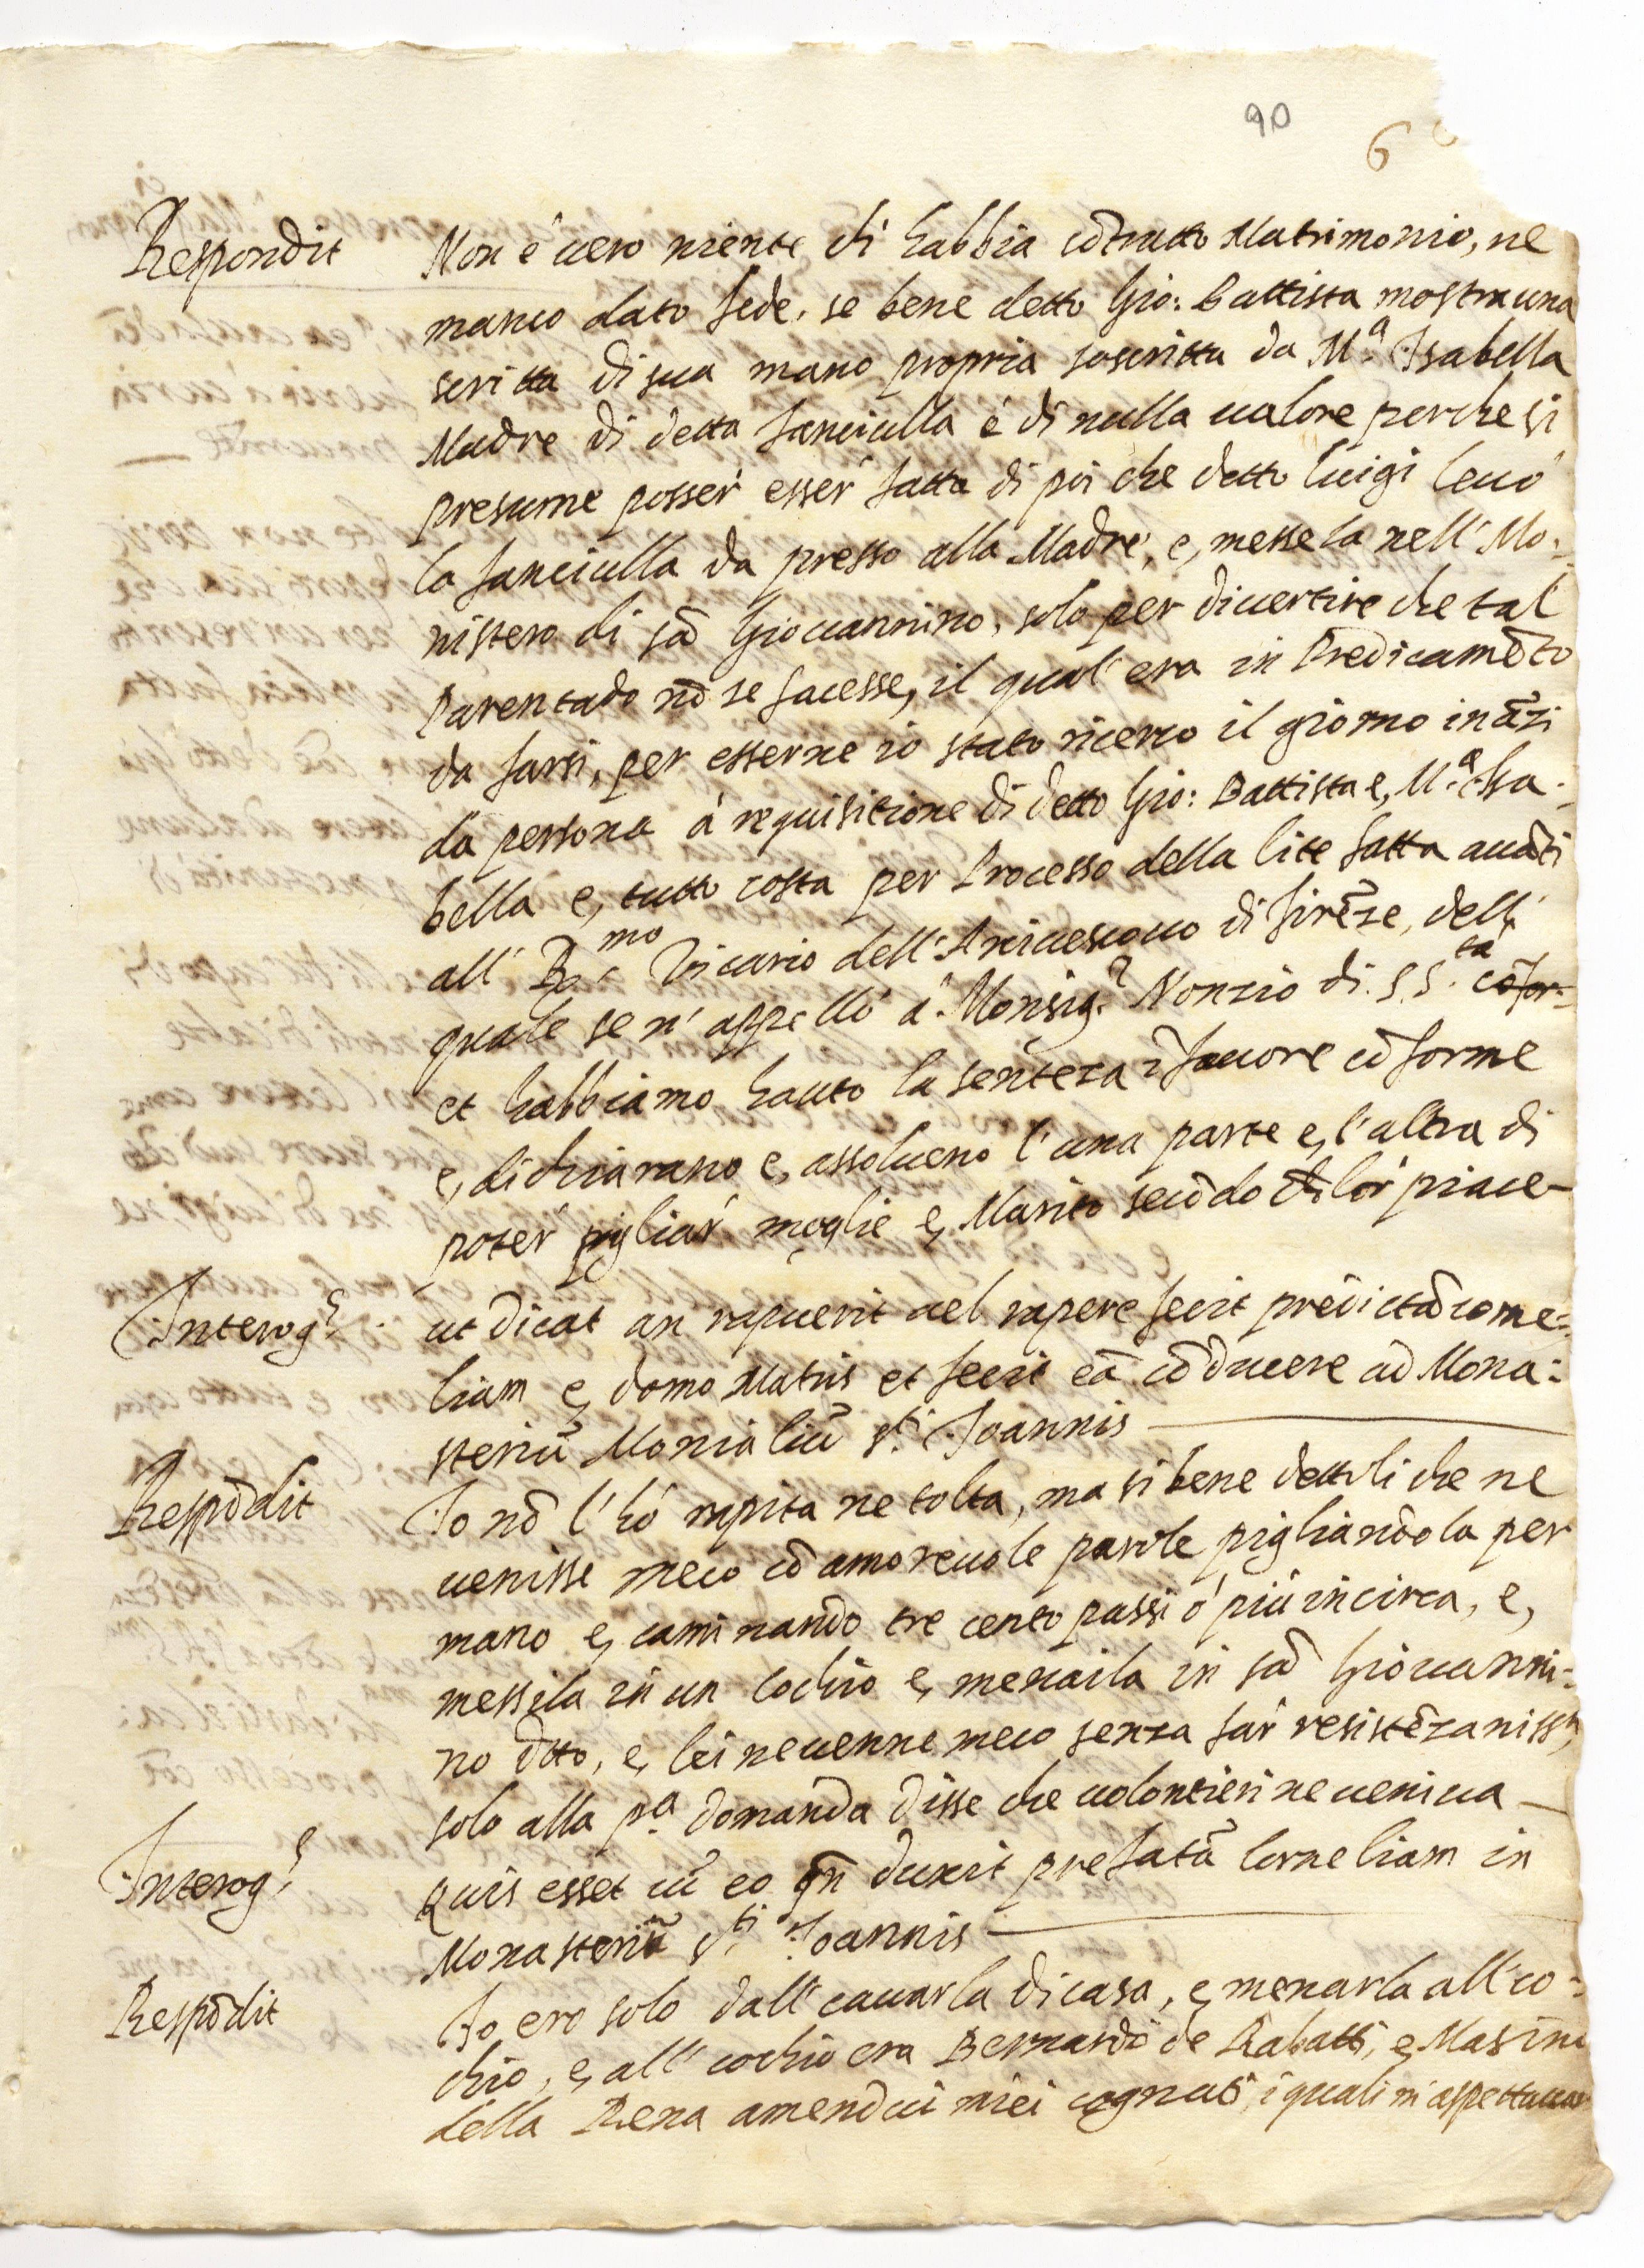 90
6
Respondit Non é uero niente di habbia cõtratto Matrimonio, ne
manco dato fede, se bene detto Gio: Battista mostra una
scritta di sua mano propria soscritta da M.ª Isabella
Madre di detta fanciulla é di nulla ualore perche si
presume posser' esser' fatta di poi che detto luigi leuó
la fanciulla da presso alla Madre, e, messela nell' Mo:
nistero di sã Giouannino, solo per diuertire che tal
Parentado nõ se facesse, il qual' era in Predicamẽto
da farsi, per esserne io stato ricerco il giorno inãzi
da persona á requisitione di detto Gio: Battista e, M.ª Isa:
bella e, tutto costa per Processo della lite fatta auãti
all' R.mo Vicario dell' Arciuescouo di firẽze, dell'
quale se n' appelló á Monsig.r Nonzio di S. S.tà cõfor=
et habbiamo hauto la sentẽza ĩ fauore cõforme
e, dichiarano e, assolueno l' una parte e, l' altra di
poter' pigliar' moglie e, Marito secõdo ch lor' piace-
Interog.s ut dicat an rapuerit uel rapere fecit predictã corne=
liam e, domo Matris et fecit eã cõducere ad Mona:
steriũ Monialiũ S.ti Joannis
Respõdit Io nõ l' hó rapita ne tolta, ma si bene dettoli che ne
uenisse meco cõ amoreuole parole pigliandola per
mano e, caminando tre cento passi ó piú in circa, e,
messila in un Cochio e, menaila in sã Giouanni=
no dtto, e, lei ne uenne meco senza far' resistẽza niss.a
solo alla p.ª domanda disse che uolontieri ne ueniua
Interog.s Quis esset cũ eo qñ duxit prefatã Corneliam in
Monasteriũ S.ti Joannis
Respõdit Io ero solo dall' cauarla di casa, e, menarla all' co=
chio, e, all' cochio era Bernardo de Rabatti, e, Masino
della Rena amendui miei cognati, i quali m' aspettauan